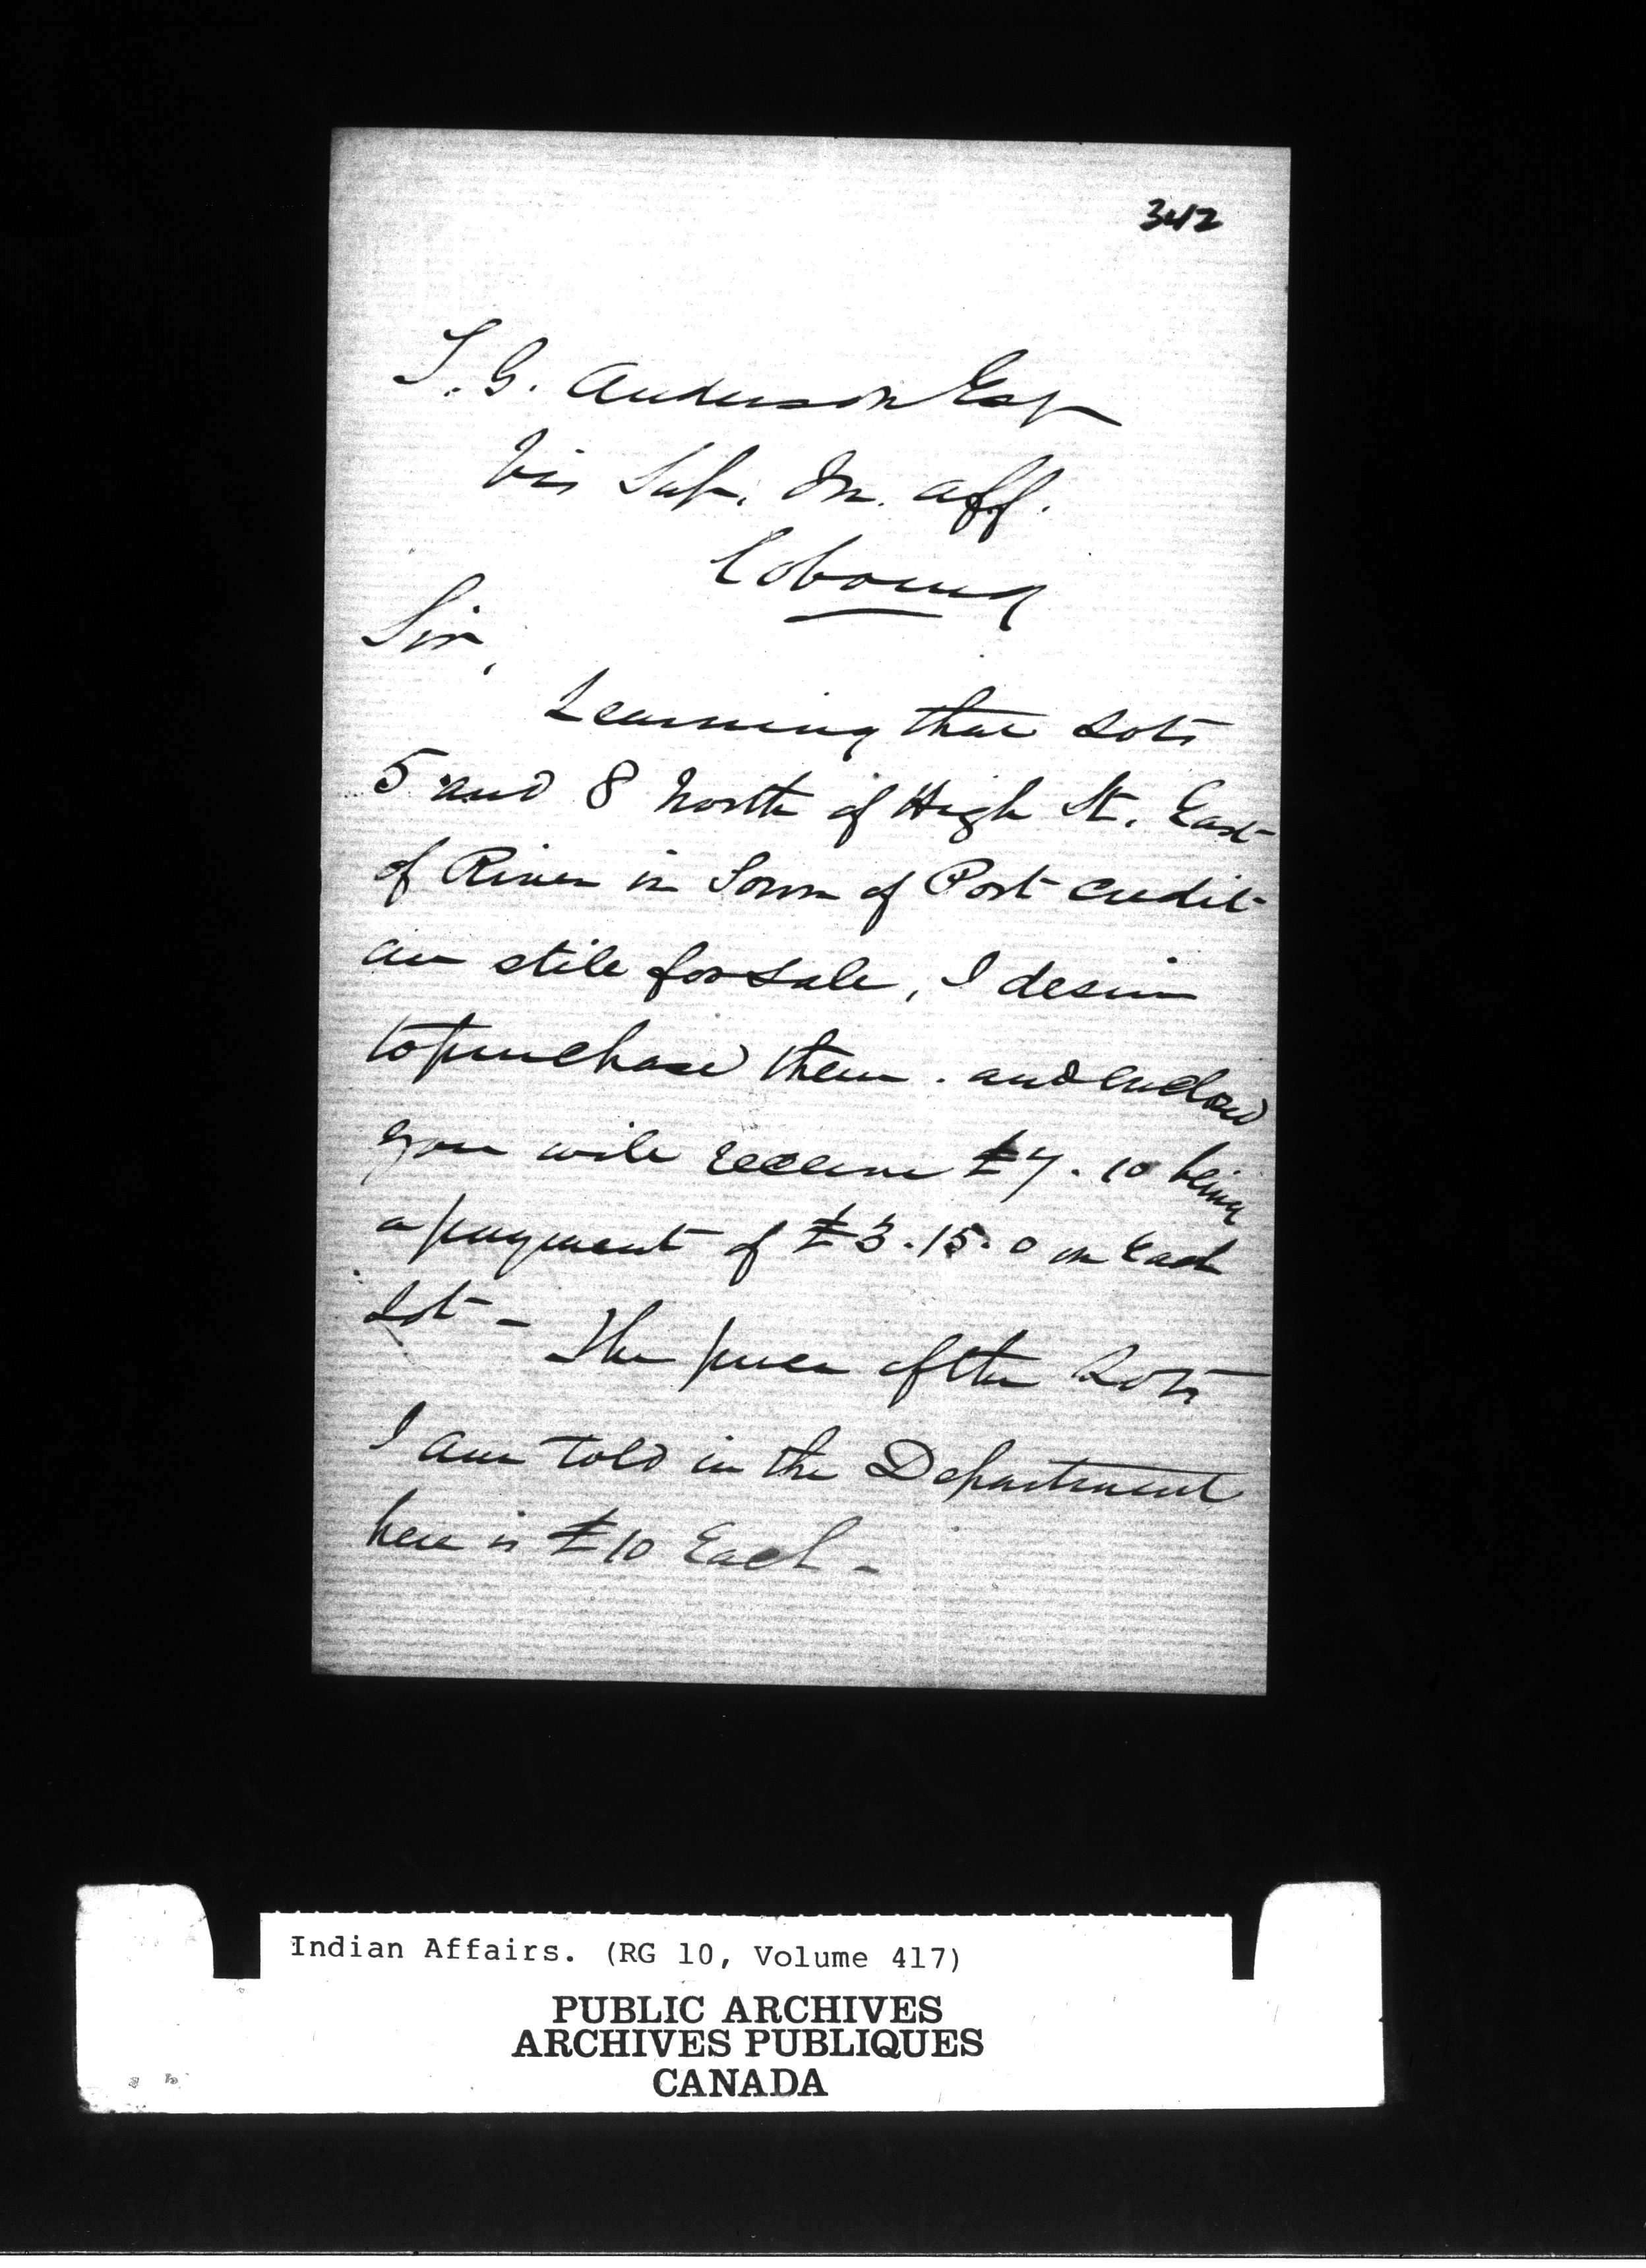 342
T. G. Anderson Esqr
Vis Sup. In. Aff.
Cobourg
Sir,
Learning that Lots
5 and 8 North of High St. East
of River in Town of Port Credit
are still for sale, I desire
to purchase them. and enclosed
you will receive £7.10 being
a payment of £3.15.0 on Each
Lot - The price of the Lots
I am told in the Department
here is £10 Each -
Indian Affairs. (RG 10, Volume 417)
PUBLIC ARCHIVES
ARCHIVES PUBLIQUES
CANADA